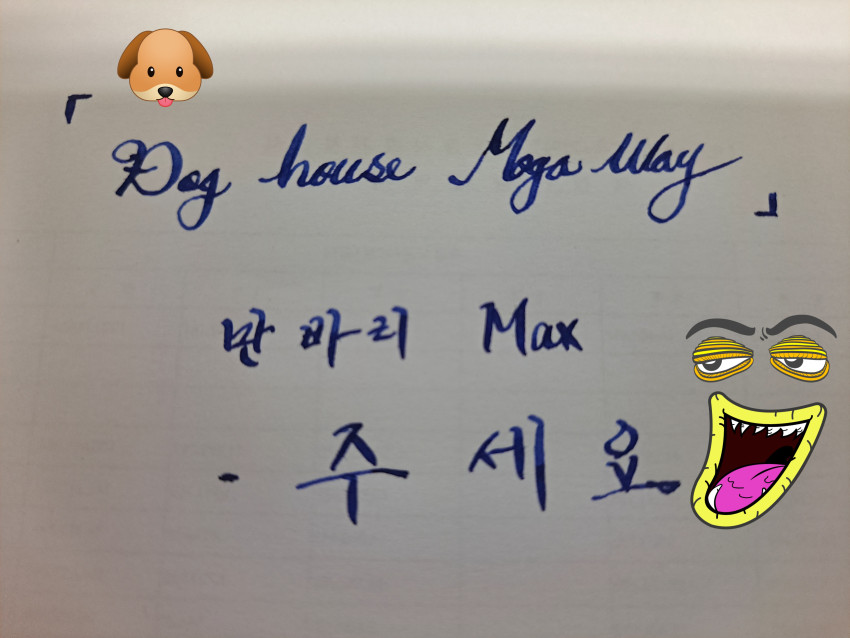 「Dog house Moga Way」
반 바리 Max
- 주 세 요